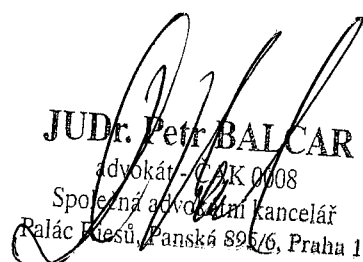 JUDr. Petr BALCAR
advokát - ČAK 0008
Společná advokátní kancelář
Palác Riesů, Panská 895/6, Praha 1